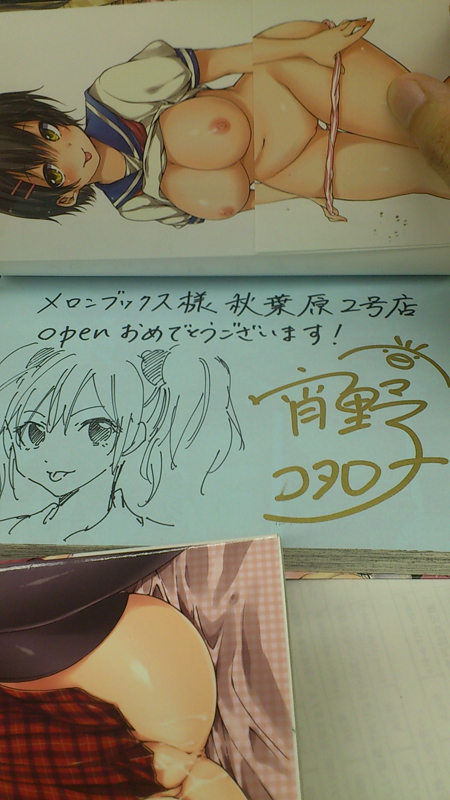 メロンブックス様 秋葉原2号店
openおめでとうございます!
宵野
コタロー